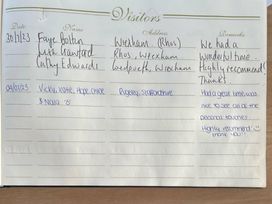 Visitors
Date Name Address Remarks
30/7/23 Faye Bolton Wrexham (Rhos) We had a
Judith Crawford Rhos, Wrexham wonderful time
Cathy Edwards Wrexham Highly recommend!
Thanks
Vicky, Katie, Hope, Chloe Rugeley, Staffordshire Had a great time, was
& Nana nice to see all of the
personal touches
Highly recommend!
thank you!!